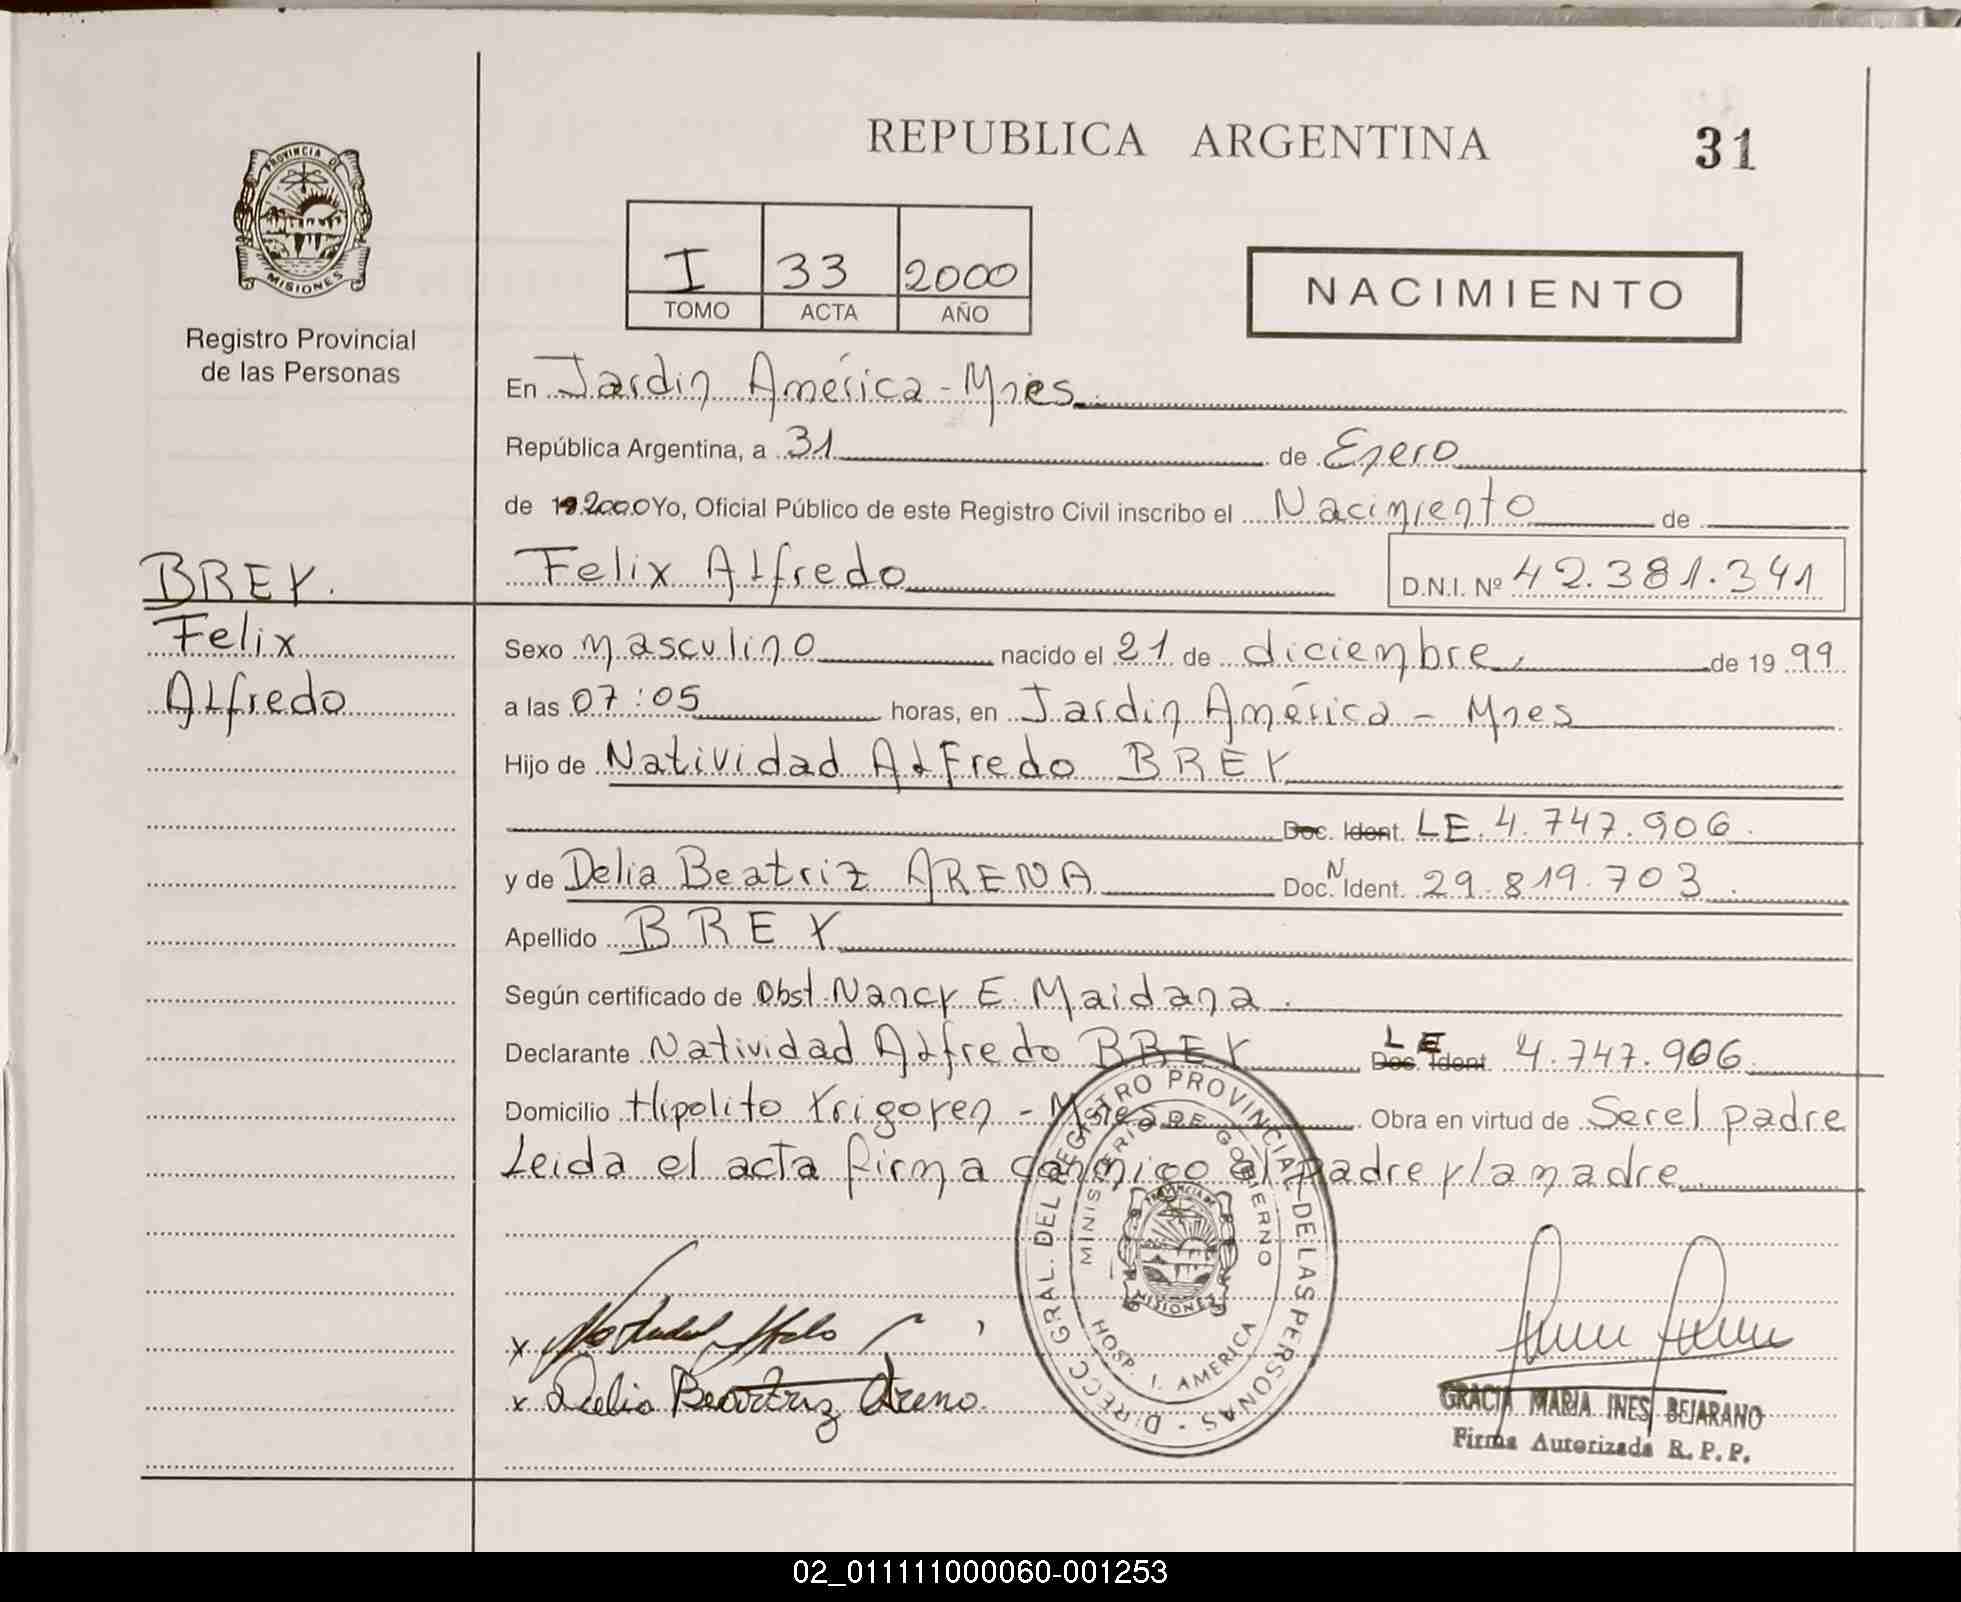 REPUBLICA ARGENTINA
31
PROVINCIA DE
MISIONES
Registro Provincial
de las Personas
I 33 2000
TOMO ACTA AÑO
NACIMIENTO
En Jardin América - Mnes
República Argentina, a 31 de Enero
de 19 2000 Yo, Oficial Público de este Registro Civil inscribo el Nacimiento de
Felix Alfredo D.N.I. Nº 42.381.341
BREY.
Felix
Alfredo
Sexo masculino nacido el 21 de diciembre, de 19 99
a las 07:05 horas, en Jardin América - Mnes
Hijo de Natividad Alfredo BREY
Doc. Ident. LE. 4.747.906.
y de Delia Beatriz ARENA Doc. N Ident. 29.819.703.
Apellido BREY
Según certificado de Obst. Nancy E. Maidana.
Declarante Natividad Alfredo BREY Doc. Ident LE 4.747.906.
Domicilio Hipolito Yrigoyen - Mnes Obra en virtud de Ser el padre
Leida el acta firma conmigo el padre y la madre
DIRECC GRAL. DEL REGISTRO PROVINCIAL DE LAS PERSONAS -
MINISTERIO DE GOBIERNO
PROVINCIA DE
MISIONES
HOSP. J. AMERICA
x
x Delia Beatriz Arena.
GRACIA MARIA INES BEJARANO
Firma Autorizada R. P. P.
02_011111000060-001253